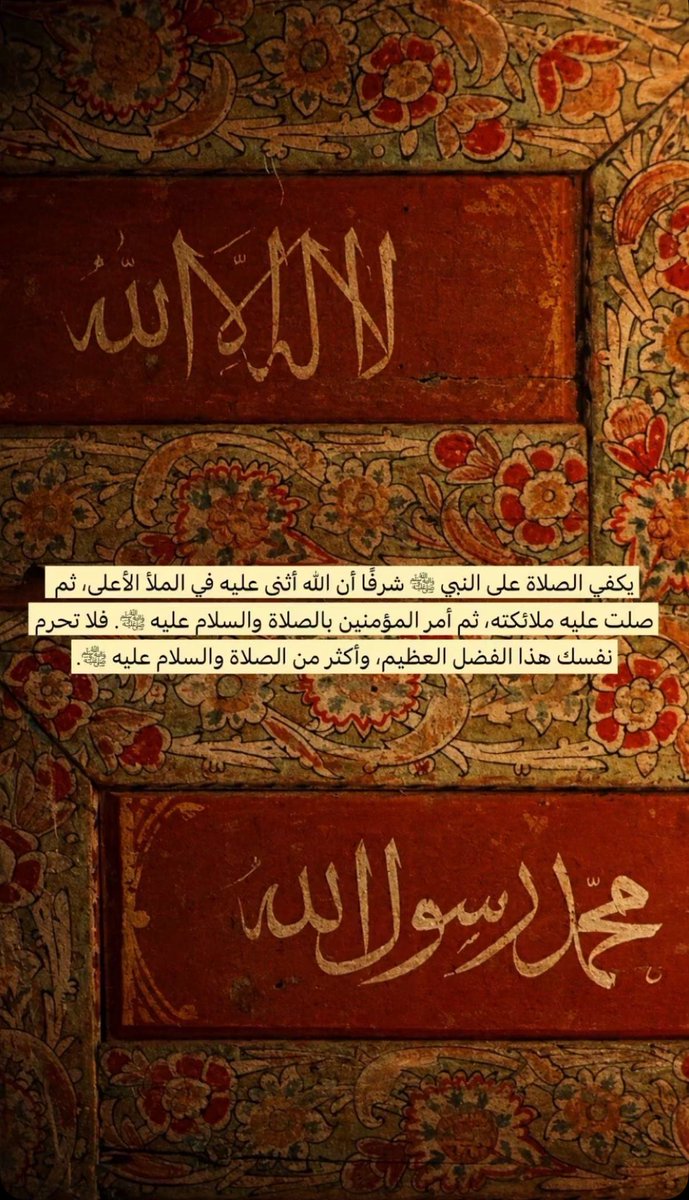 لا إله إلا الله
يكفي الصلاة على النبي ﷺ شرفًا أن الله أثنى عليه في الملأ الأعلى، ثم
صلت عليه ملائكته، ثم أمر المؤمنين بالصلاة والسلام عليه ﷺ. فلا تحرم
نفسك هذا الفضل العظيم، وأكثر من الصلاة والسلام عليه ﷺ.
محمد رسول الله